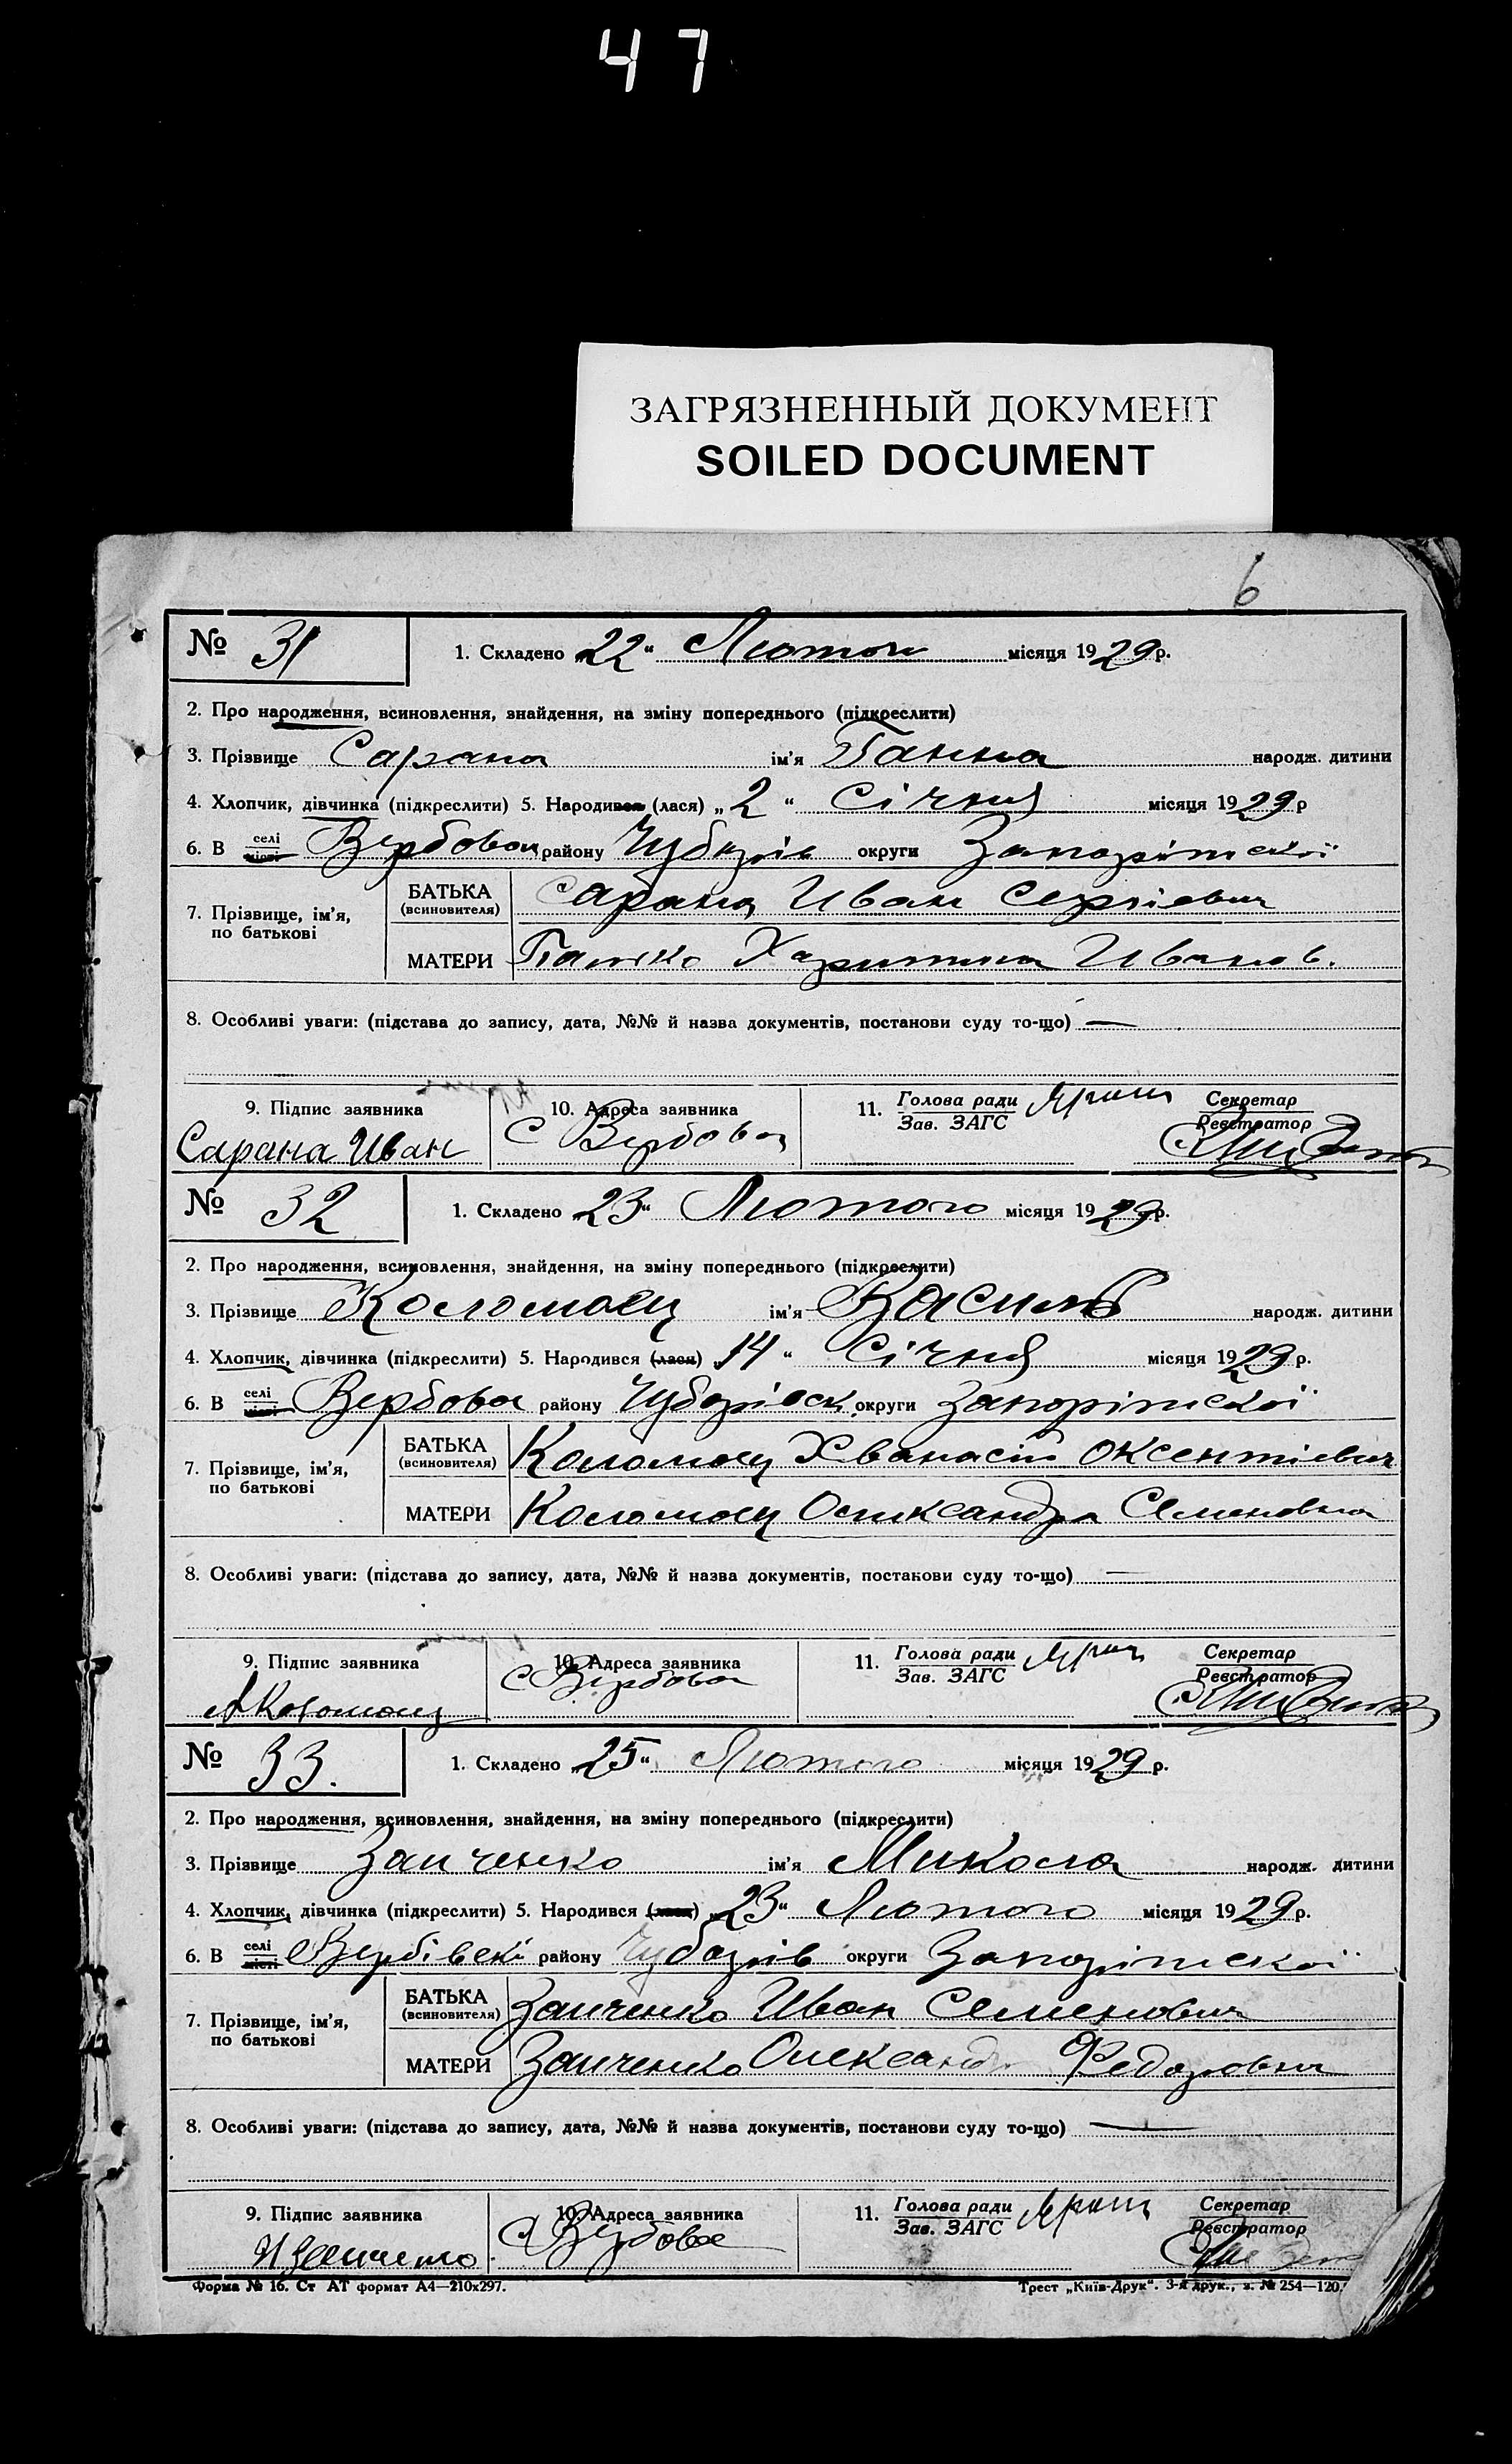 47
ЗАГРЯЗНЕННЫЙ ДОКУМЕНТ
SOILED DOCUMENT
6
№ 31 1. Складено „22“ Лютого місяця 1929 р.
2. Про народження, всиновлення, знайдення, на зміну попереднього (підкреслити)
3. Прізвище Сарана ім'я Ганна народж. дитини
4. Хлопчик, дівчинка (підкреслити) 5. Народився (лася) „2“ Січня місяця 1929 р
6. В селі місті Вербовои району Чубарів округи Запоріжської
7. Прізвище, ім'я, по батькові БАТЬКА (всиновителя) Сарана Иван Сергіевич
МАТЕРИ Харитина Иванов.
8. Особливі уваги: (підстава до запису, дата, №№ й назва документів, постанови суду то-що) —
9. Підпис заявника 10. Адреса заявника 11. Голова ради Зав. ЗАГС Секретар Реєстратор
Сарана Иван С Вербова
№ 32 1. Складено „23“ Лютого місяця 1929 р.
2. Про народження, всиновлення, знайдення, на зміну попереднього (підкреслити)
3. Прізвище Коломоец ім'я Василь народж. дитини
4. Хлопчик, дівчинка (підкреслити) 5. Народився (лася) „14“ Січня місяця 1929 р.
6. В селі місті Вербова району Чубарівск. округи Запоріжської
7. Прізвище, ім'я, по батькові БАТЬКА (всиновителя) Коломоец Хванасій Оксентіевич
МАТЕРИ Коломоец Олександра Семеновна
8. Особливі уваги: (підстава до запису, дата, №№ й назва документів, постанови суду то-що) —
9. Підпис заявника 10. Адреса заявника 11. Голова ради Зав. ЗАГС Секретар Реєстратор
А Коломоец С Вербова
№ 33. 1. Складено „25“ Лютого місяця 1929 р.
2. Про народження, всиновлення, знайдення, на зміну попереднього (підкреслити)
3. Прізвище Заиченко ім'я Микола народж. дитини
4. Хлопчик, дівчинка (підкреслити) 5. Народився (лася) „23“ Лютого місяця 1929 р.
6. В селі місті району Чубарів округи Запоріжської
7. Прізвище, ім'я, по батькові БАТЬКА (всиновителя) Заиченко Иван Семенович
МАТЕРИ Заиченко Олександр Федоровна
8. Особливі уваги: (підстава до запису, дата, №№ й назва документів, постанови суду то-що) —
9. Підпис заявника 10. Адреса заявника 11. Голова ради Зав. ЗАГС Секретар Реєстратор
И Заиченко. С Вербове
Форма № 16. Ст АТ формат А4—210х297. Трест „Київ-Друк“. 3-я друк., з. № 254—120.